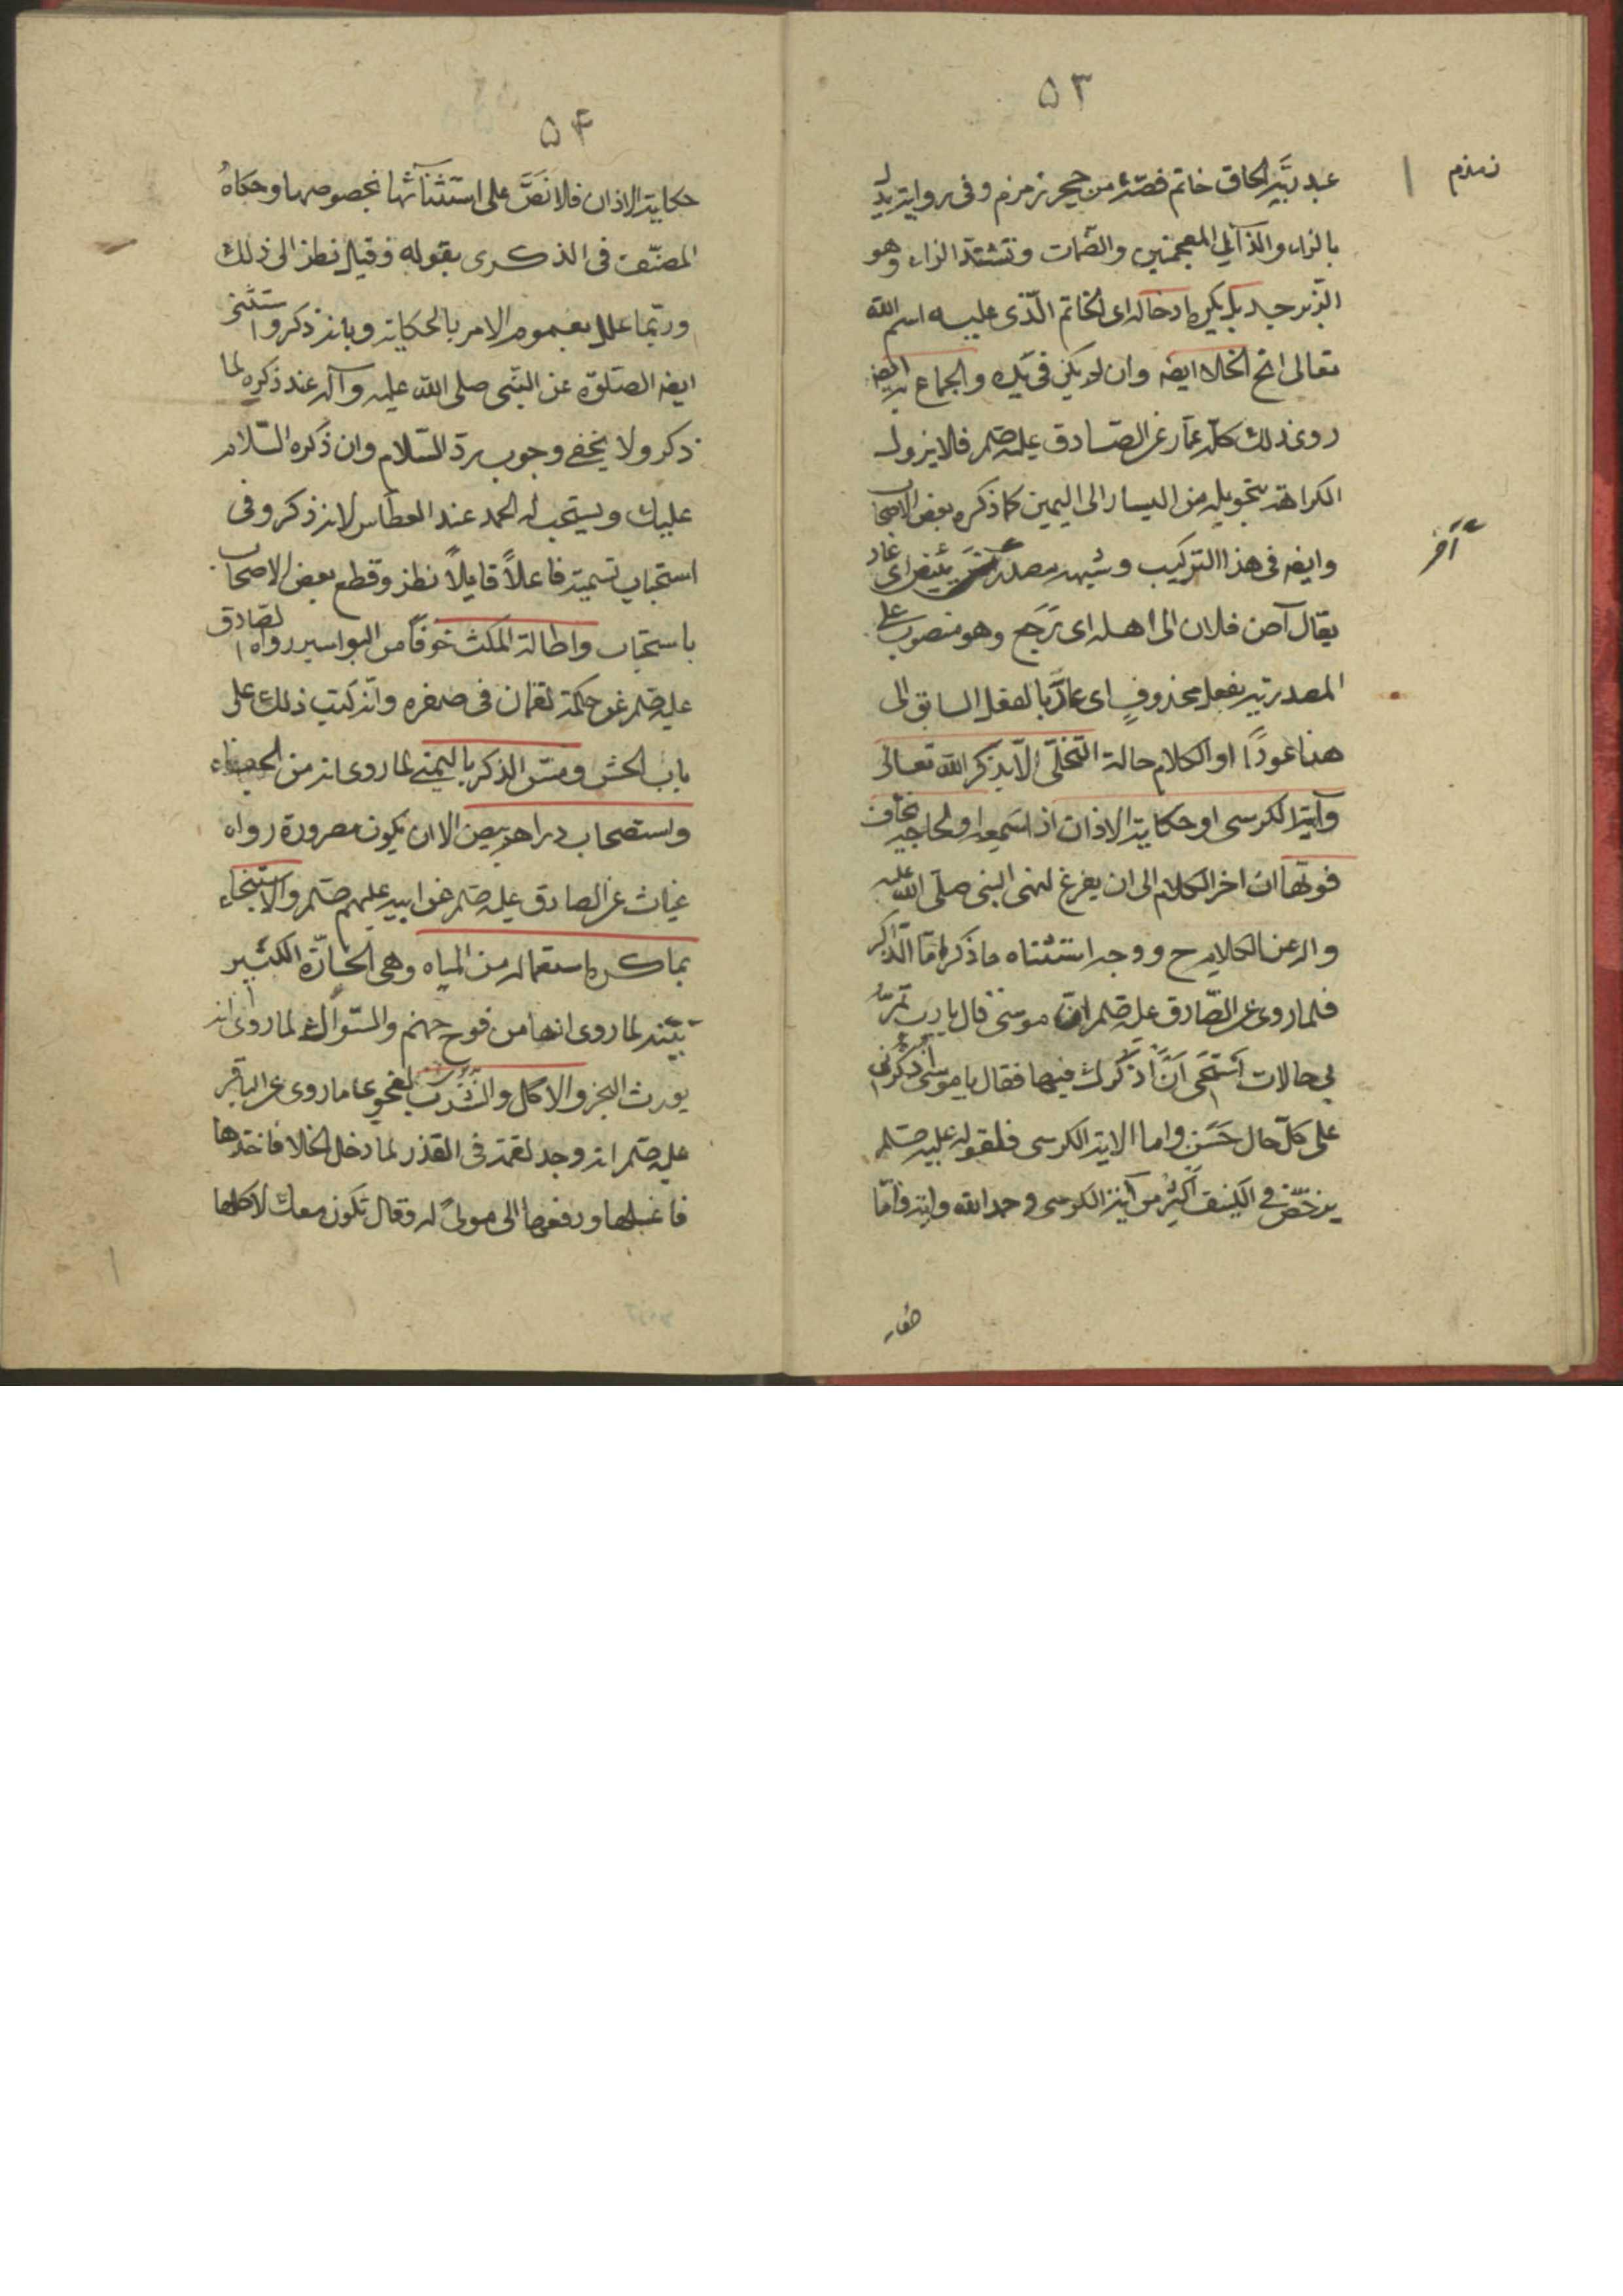 ۵۳
عبد ربه الحاق خاتم فصّه من حجر زمزم وفى رواية بدل
زمزم
بالزاء والذال المعجمتين والضمات وتشدّ الراء وهو
الزبرجد بل يكره ادخاله اى الخاتم الّذى عليه اسم اللّه
تعالى الخ الخلا ايضه وان لم يكن فى يده والجماع به ايضه
روى ذلك كلّه عمّار عن الصّادق عليه صلم فلا يزول
الكراهة بتحويله من اليسار الى اليمين كما ذكره بعض الاصحاب
وايضه فى هذا التركيب وشبهه مصدر يئيض اى عاد
آخر
يقال آض فلان الى اهله اى رَجَع وهو منصوب على
المصدرية بفعل محذوفٍ اى عادَ بالفعل السابق الى
هنا عودًا او الكلام حالة التخلّى الّا بذكر اللّه تعالى
وآية الكرسى او حكاية الاذان اذا سمعه او لحاجة يخاف
فوتها ان اخر الكلام الى ان يفرغ لنهى النبى صلّى اللّه عليه
واله عن الكلام ح ووجه استثناء ما ذكر امّا الذّكر
فلما روى عن الصّادق عليه صلم انّ موسى قال يا رب تمرّ
بى حالات اَستحيى اَنْ اَذكرك فيها فقال يا موسى اذكرنى
على كلّ حال حَسَن واما الاية الكرسى فلقوله عليه صلم
يرخّص فى الكنيف اكثر من آية الكرسى وحمد اللّه واية وامّا
۵۴
حكاية الاذان فلا نَصَّ على استثنائها بخصوصها وحكاهُ
المصنّف فى الذكرى بقوله وقيل نظر الى ذلك
وربّما علل بعموم الامر بالحكاية وبانه ذكر واستثنى
ايضه الصّلوة عن النّبى صلى اللّه عليه وآله عند ذكره لما
ذكر ولا يخفى وجوب ردّ السّلام وان ذكره السّلام
عليك ويستحب له الحمد عند العطاس لانه ذكر وفى
استحباب تسميته فاعلاً قابلاً نظر وقطع بعض الاصحاب
باستحباب واطالة المكث خوفًا من البواسير رواه الصّادق
عليه صلم عن حكمة لقمان فى صغره وانّه كتب ذلك على
باب الحش ومسّ الذكر باليمنى لما روى انه من الجفاء
واستصحاب دراهم بيض الا ان يكون مصرورة رواه
غياث عن الصادق عليه صلم عن ابيه عليهم صلم والاستنجاء
بما كره استعماله من المياه وهى الحارّة الكثير
لما روى انها من فوح جهنم والسّواك لما روى انه
يورث البخر والاكل والشُرب لفحوى ما روى عن الباقر
عليه صلم انه وجد لقمة فى القذر لما دخل الخلا فاخذها
فاغسلها ودفعها الى مولىً له وقال تكون معك لاكلها